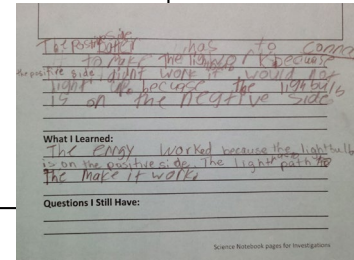 side
The Positive Batter has to Connec
to make the light because
the positive side didnt work it would not
light because the lighbulb
is on the negtive side
What I Learned:
The enrgy worked because the lightbulb
is on the positive side. The light path to
The make it work.
Questions I Still Have:
Science Notebook pages for Investigations